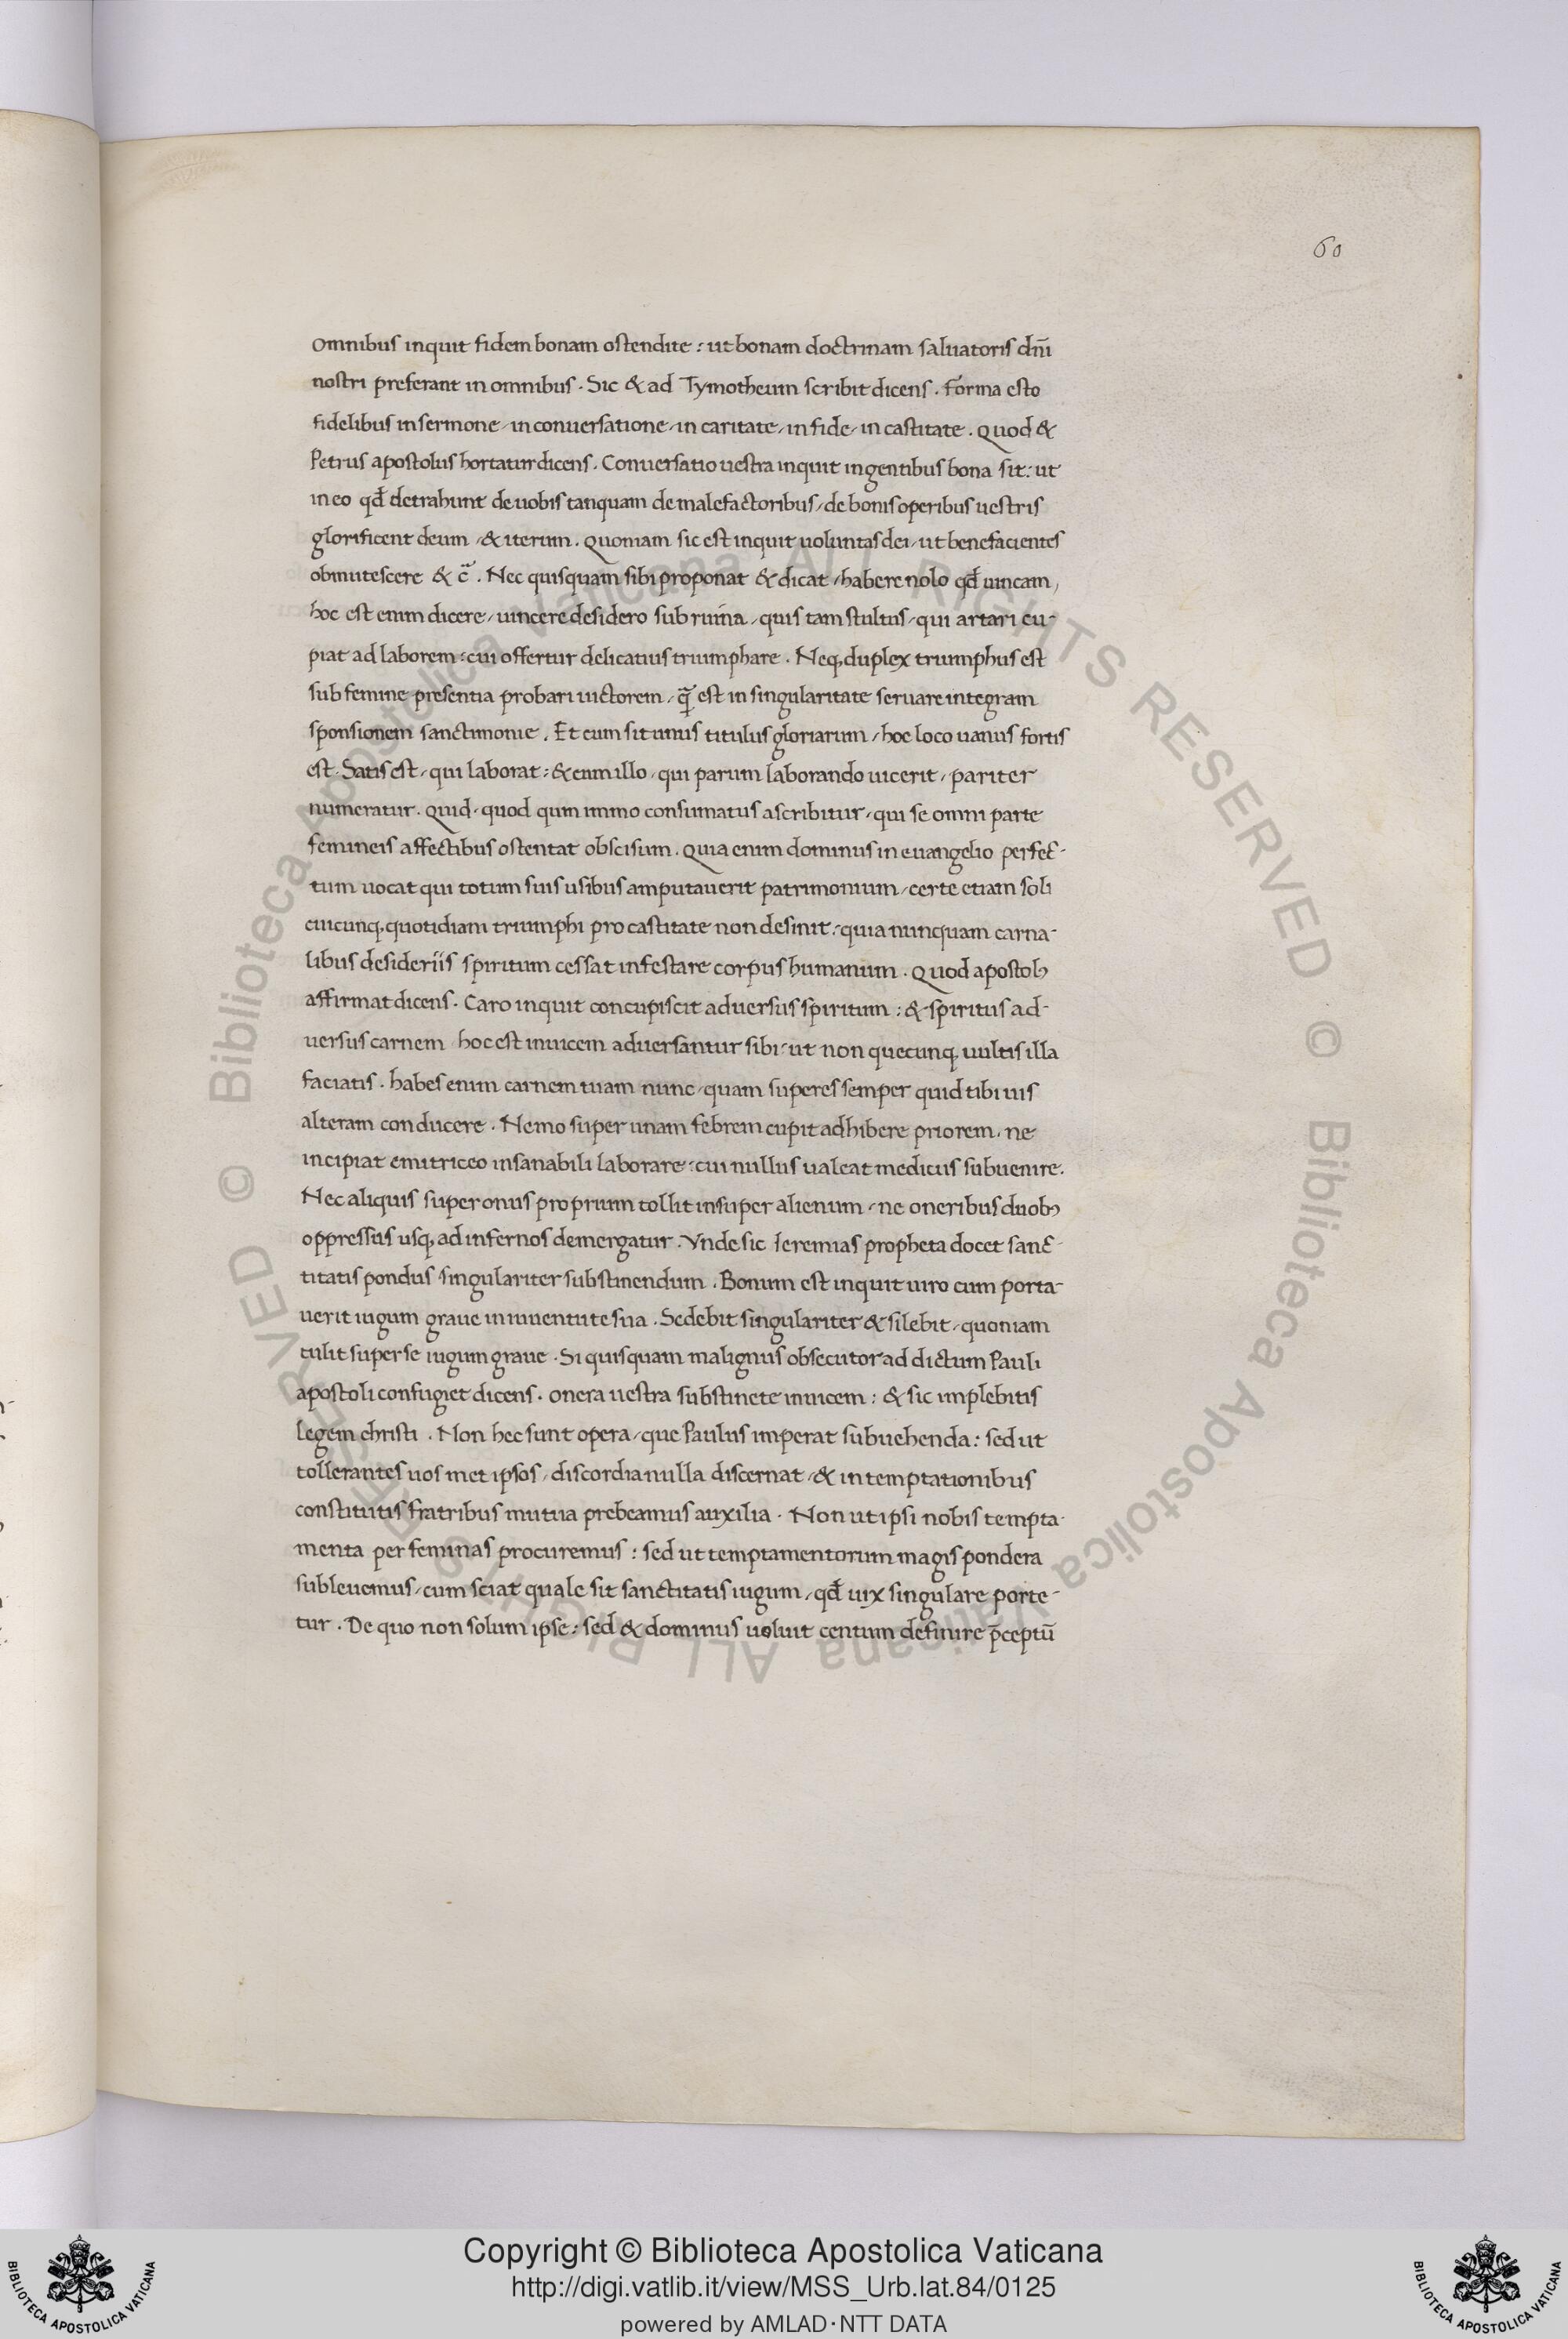 60
omnibus inquit fidem bonam ostendite : ut bonam doctrinam saluatoris dn̄i
nostri preferant in omnibus . Sic & ad Tymotheum scribit dicens . Forma esto
fidelibus in sermone / in conuersatione / in caritate / in fide / in castitate . Quod &
Petrus apostolus hortatur dicens . Conuersatio uestra inquit in gentibus bona sit : ut
in eo qđ detrahunt de uobis tanquam de malefactoribus / de bonis operibus uestris
glorificent deum / & iterum . Quoniam sic est inquit uoluntas dei / ut benefacientes
obmutescere & c̃ . Nec quisquam sibi proponat & dicat / habere nolo qđ uincam /
hoc est enim dicere / uincere desidero sub ruina / quis tam stultus / qui artari cu-
piat ad laborem : cui offertur delicatius triumphare . Neq, duplex triumphus est
sub femine presentia probari uictorem / q̄ est in singularitate seruare integram
sponsionem sanctimonie . Et cum sit unus titulus gloriarum / hoc loco uanus fortis
est . Satis est / qui laborat : & cum illo / qui parum laborando uicerit / pariter
numeratur . Quid / quod quin immo consumatus ascribitur / qui se omni parte
femineis affectibus ostentat obscisum . Quia enim dominus in euangelio perfec-
tum uocat qui totum suis usibus amputauerit patrimonium / certe etiam soli
cuicunq, quotidiani triumphi pro castitate non desinit : quia nunquam carna-
libus desideriis spiritum cessat infestare corpus humanum . Quod apostolꝰ
affirmat dicens . Caro inquit concupiscit aduersus spiritum : & spiritus ad-
uersus carnem hoc est inuicem aduersantur sibi : ut non quecunq, uultis illa
faciatis . habes enim carnem tuam nunc / quam superes semper quid tibi uis
alteram conducere . Nemo super unam febrem cupit adhibere priorem / ne
incipiat emitriceo insanabili laborare : cui nullus ualeat medicus subuenire .
Nec aliquis super onus proprium tollit insuper alienum / ne oneribus duobꝰ
oppressus usq, ad infernos demergatur . Vnde sic Ieremias propheta docet sanc-
titatis pondus singulariter substinendum . Bonum est inquit uiro cum porta-
uerit iugum graue in iuuentute sua . Sedebit singulariter & silebit / quoniam
tulit super se iugum graue . Si quisquam malignus obsecutor ad dictum Pauli
apostoli confugiet dicens . onera uestra substinete inuicem : & sic implebitis
legem christi . Non hec sunt opera / que Paulus imperat subuehenda : sed ut
tollerantes uos met ipsos / discordia nulla discernat / & in temptationibus
constitutis fratribus mutua prebeamus auxilia . Non ut ipsi nobis tempta-
menta per feminas procuremus : sed ut temptamentorum magis pondera
subleuemus / cum sciat quale sit sanctitatis iugum / qđ uix singulare porte-
tur . De quo non solum ipse : sed & dominus uoluit centum definire p̄ceptū
© Biblioteca Apostolica Vaticana ALL RIGHTS RESERVED © Biblioteca Apostolica Vaticana ALL RIGHTS RESERVED
Copyright © Biblioteca Apostolica Vaticana
http://digi.vatlib.it/view/MSS_Urb.lat.84/0125
powered by AMLAD·NTT DATA
BIBLIOTECA APOSTOLICA VATICANA
BIBLIOTECA APOSTOLICA VATICANA